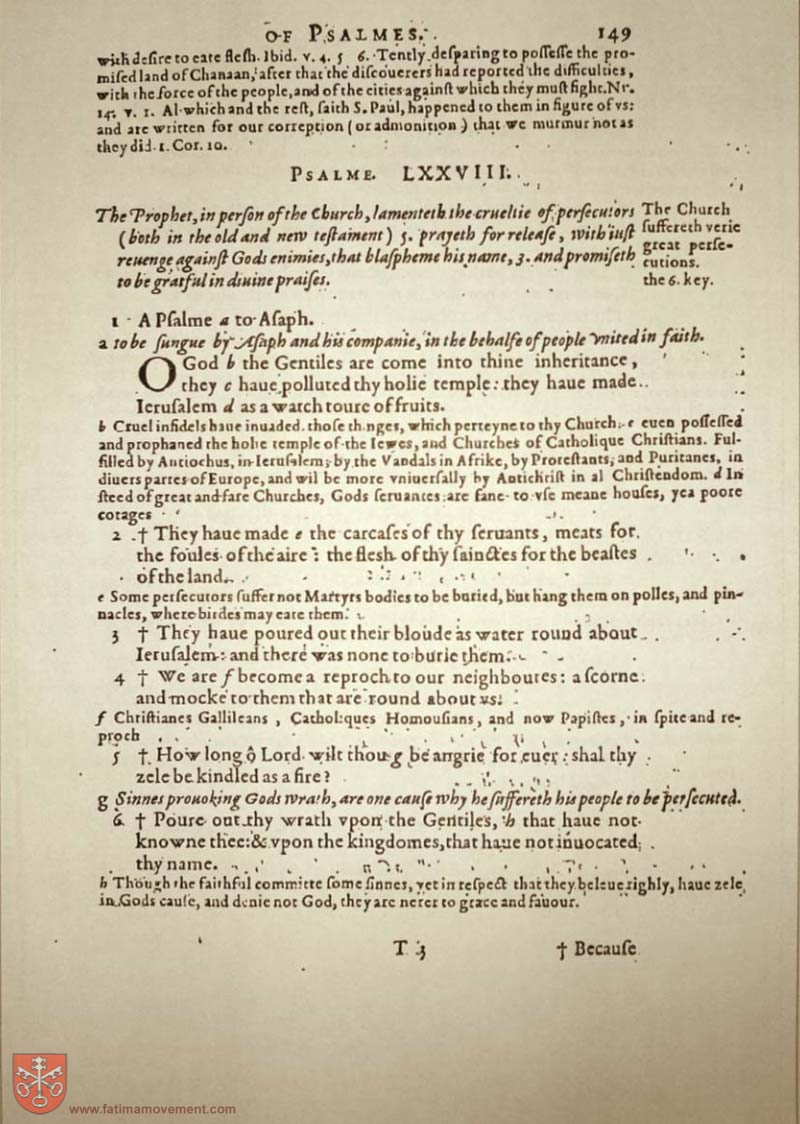 OF PSALMES. 149
with desire to eate flesh. Ibid. v. 4. 5 6. Tently desparing to possesse the pro-
mised land of Chanaan, after that the discouerers had reported the difficulties,
with the force of the people, and of the cities against which they must fight. Nr.
14. v. 1. Al which and the rest, saith S. Paul, happened to them in figure of vs:
and are written for our correption (or admonition) that we murmur not as
they did. 1. Cor. 10.
PSALME. LXXVIII.
The Prophet, in person of the Church, lamenteth the crueltie of persecutors
(both in the old and new testament) 5. prayeth for release, with iust
reuenge against Gods enimies, that blaspheme his name, 3. and promiseth
to be gratful in diuine praises.
The Church
suffereth verie
great perse-
cutions.
the 6. key.
1 A Psalme a to Asaph.
a to be sungue by Asaph and his companie, in the behalfe of people vnited in faith.
O God b the Gentiles are come into thine inheritance,
they c haue polluted thy holie temple: they haue made
Ierusalem d as a watch toure of fruits.
b Cruel infidels haue inuaded those thinges, which perteyne to thy Church. c euen possessed
and prophaned the holie temple of the Iewes, and Churches of Catholique Christians. Ful-
filled by Antiochus, in Ierusalem; by the Vandals in Afrike, by Protestants, and Puritanes, in
diuers partes of Europe, and wil be more vniuersally by Antichrist in al Christendom. d In
steed of great and fare Churches, Gods seruantes are fane to vse meane houses, yea poore
cotages
2 † They haue made e the carcases of thy seruants, meats for
the foules of the aire: the flesh of thy sainctes for the beastes
of the land.
e Some persecutors suffer not Martyrs bodies to be buried, but hang them on polles, and pin-
nacles, where birdes may eate them.
3 † They haue poured out their bloude as water round about
Ierusalem: and there was none to burie them.
4 † We are f become a reproch to our neighboures: a scorne
and mocke to them that are round about vs.
f Christianes Gallileans, Catholiques Homousians, and now Papistes, in spite and re-
proch
5 † How long ô Lord wilt thou g be angrie for euer: shal thy
zele be kindled as a fire?
g Sinnes prouoking Gods wrath, are one cause why he suffereth his people to be persecuted.
6 † Poure out thy wrath vpon the Gentiles, h that haue not
knowne thee: & vpon the kingdomes, that haue not inuocated
thy name.
h Though the faithful committe some sinnes, yet in respect that they beleue righly, haue zele
in Gods cause, and denie not God, they are nerer to grace and fauour.
T 3 † Because
www.fatimamovement.com